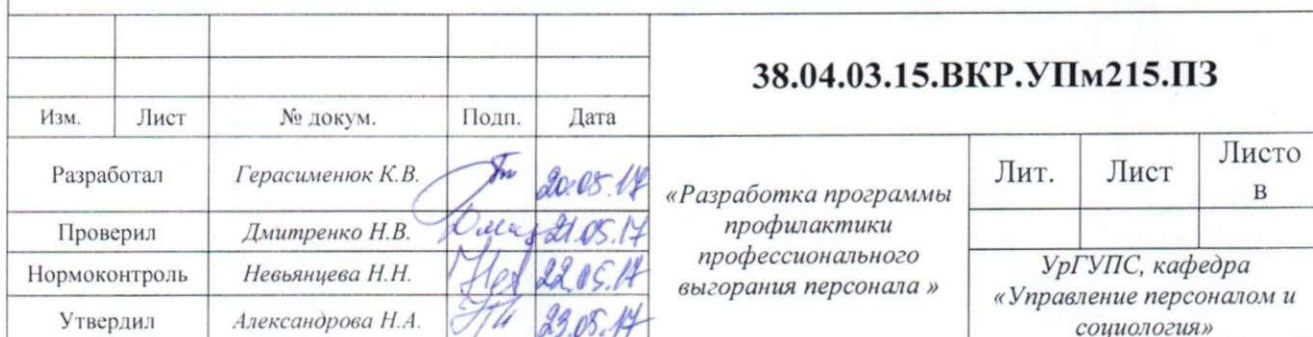 38.04.03.15.ВКР.УПм215.ПЗ
Изм. Лист № докум. Подп. Дата
Разработал Герасименюк К.В. 20.05.17
Проверил Дмитренко Н.В. 21.05.17
Нормоконтроль Невьянцева Н.Н. 22.05.17
Утвердил Александрова Н.А. 23.05.17
«Разработка программы
профилактики
профессионального
выгорания персонала »
Лит. Лист Листо
в
УрГУПС, кафедра
«Управление персоналом и
социология»